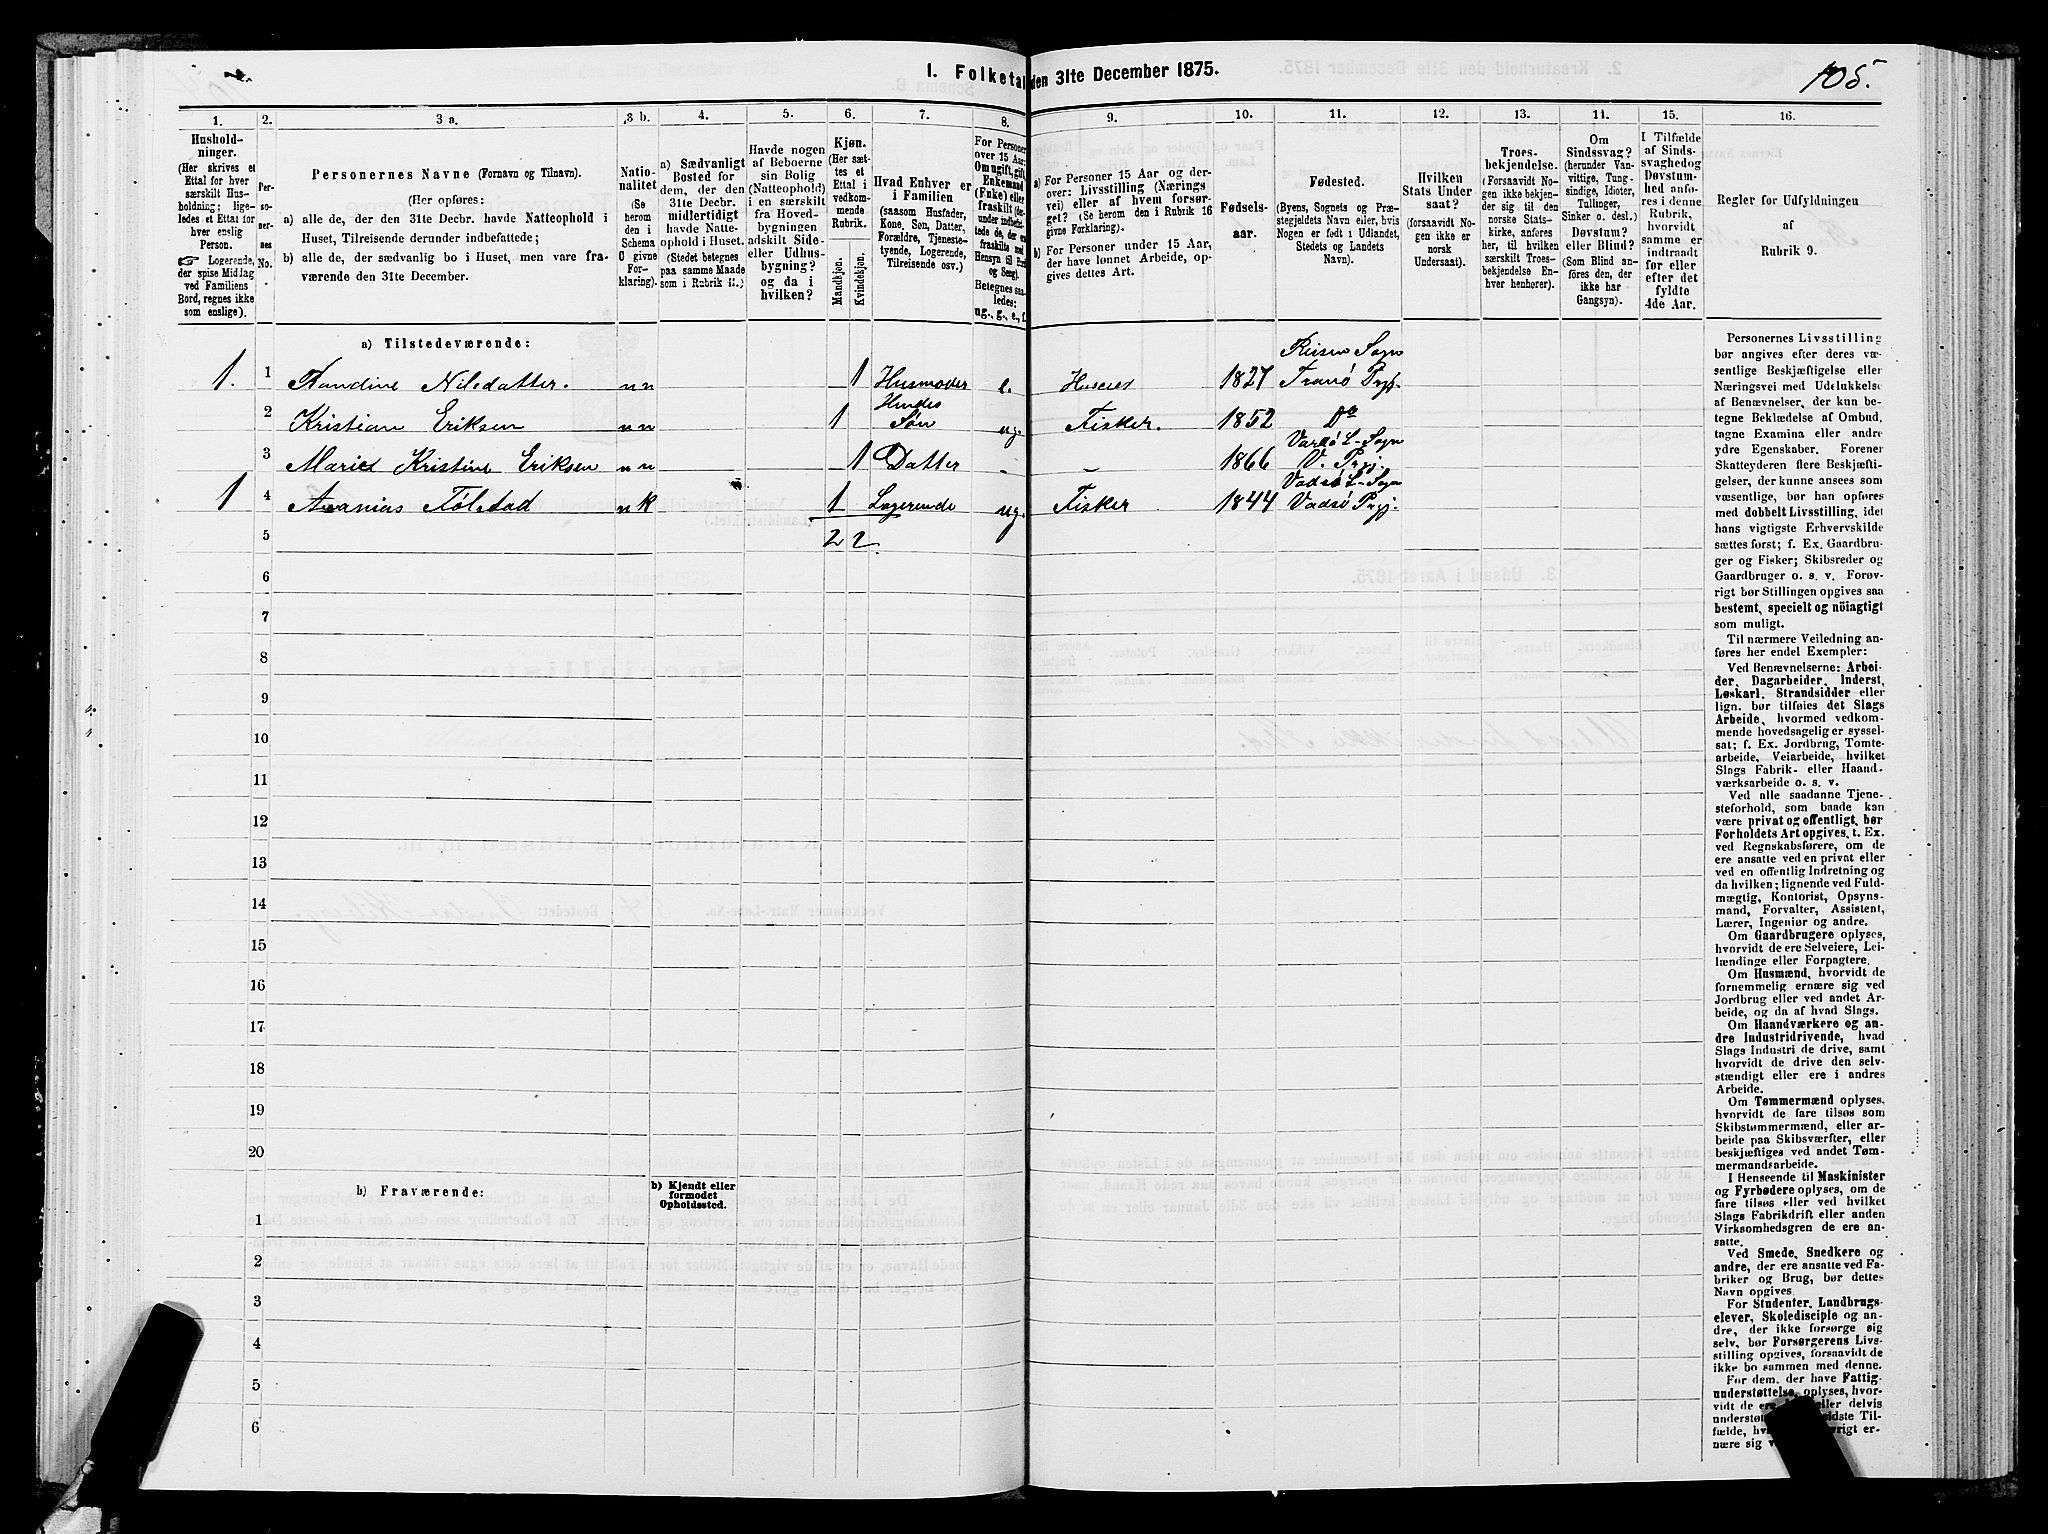 I. Folketal den 31te December 1875.
105.
1.
2.
3 a.
3 b.
4.
5.
6.
7.
8.
9.
10.
11.
12.
13.
11.
15.
16.
Hushold-
ninger.
(Her skrives et
Ettal for hver
særskilt Hus-
holdning; lige-
ledes et Ettal for
hver enslig
Person.
☞ Logerende,
der spise Middag
ved Familiens
Bord, regnes ikke
som enslige).
Per-
so-
ner-
nes
No.
Personernes Navne (Fornavn og Tilnavn).
(Her opføres:
a) alle de, der den 31te Decbr. havde Natteophold i
Huset, Tilreisende derunder indbefattede;
b) alle de, der sædvanlig bo i Huset, men vare fra-
værende den 31te December.
Natio-
nalitet
(Se
herom
den i
Schema
C givne
For-
klaring).
a) Sædvanligt
Bosted for
dem, der den
31te Decbr.
midlertidigt
havde Natte-
ophold i Huset.
(Stedet betegnes
paa samme Maade
som i Rubrik 11.)
Havde nogen
af Beboerne
sin Bolig
(Natteophold)
i en særskilt
fra Hoved-
bygningen
adskilt Side-
eller Udhus-
bygning?
og da i
hvilken?
Kjøn.
(Her sæt-
tes et
Ettal i
vedkom-
mende
Rubrik.
Mandkjøn.
Kvindekjøn.
Hvad Enhver er
i Familien
(saasom Husfader,
Kone, Søn, Datter,
Forældre, Tjeneste-
tyende, Logerende,
Tilreisende osv.)
For Personer
over 15 Aar:
Om ugift, gift,
Enkemand
(Enke) eller
fraskilt
Betegnes saa-
ledes:
ug., g., e., f.
a) For Personer 15 Aar og der-
over: Livsstilling (Nærings
vei) eller af hvem forsør-
get? (Se herom den i Rubrik 16
givne Forklaring).
b) For Personer under 15 Aar,
der have lønnet Arbeide, op-
gives dettes Art.
Fødsels-
aar.
Fødested.
(Byens, Sognets og Præ-
stegjeldets Navn eller, hvis
Nogen er født i Udlandet,
Stedets og Landets
Navn).
Hvilken
Stats Under
saat?
(forsaavidt No-
gen ikke er
norsk
Undersaat).
Troes-
bekjendelse.
(Forsaavidt No-
gen ikke bekjen-
der sig til den
norske Stats-
kirke, anføres
her, til hvilken
særskilt Troes-
bekjendelse En-
hver henhører).
Om
Sindssvag?
(herunder Van-
vittige, Tung-
sindige, Idioter,
Tullinger,
Sinker o. desl.)
Døvstum?
eller Blind?
(Som Blind an-
føres den, der
ikke har
Gangsyn).
I Tilfælde
af Sinds-
svaghedog
Døvstum-
hed anfø-
res i denne
Rubrik,
hvorvidt
samme er
indtraadt
før eller
efter det
fyldte
4de Aar.
Regler for Udfyldningen
af
Rubrik 9.
a) Tilstedeværende:
Reisen Sogn
1. 1 Randine Nilsdatter. n n 1 Husmoder e. Huseier 1827 Tranø Prgj.
Hendes
2 Kristian Eriksen n n 1 Søn ug. Fisker. 1852 Do
Vardø L-Sogn
3 Marie Kristine Eriksen n n 1 Datter – – 1866 V. Prgj.
Vadsø L-Sogn
1 4 Ananias Tølstad n k 1 Logerende ug. Fisker 1844 Vadsø Prgj.
5 2 2
6
7
8
9
10
11
12
13
14
15
16
17
18
19
20
b) Fraværende:
b) Kjendt eller
formodet
Opholdssted.
1
2
3
4
5
6
Personernes Livsstilling
bør angives efter deres væ-
sentlige Beskjæftigelse eller
Næringsvei med Udelukkelse
af Benævnelser, der kun be-
tegne Beklædelse af Ombud,
tagne Examina eller andre
ydre Egenskaber. Forener
Skatteyderen flere Beskjæfti-
gelser, der kunne ansees som
væsentlige, bør han opføres
med dobbelt Livsstilling, idet
hans vigtigste Erhvervskilde
sættes først; f. Ex. Gaardbru-
ger og Fisker; Skibsreder og
Gaardbruger o. s. v. Forøv-
rigt bør Stillingen opgives saa
bestemt, specielt og nöiagtigt
som muligt.
Til nærmere Veiledning an-
føres her endel Exempler:
Ved Benævnelserne: Arbei-
der, Dagarbeider, Inderst,
Løskarl, Strandsidder eller
lign. bør tilføies det Slags
Arbeide, hvormed vedkom-
mende hovedsagelig er syssel-
sat; f. Ex. Jordbrug, Tomte-
arbeide, Veiarbeide, hvilket
Slags Fabrik- eller Haand-
værksarbeide o. s. v.
Ved alle saadanne Tjene-
steforhold, som baade kan
være privat og offentligt, bør
Forholdets Art opgives, t. Ex.
ved Regnskabsførere, om de
ere ansatte ved en privat eller
ved en offentlig Indretning og
da hvilken; lignende ved Fuld-
mægtig, Kontorist, Opsyns-
mand, Forvalter, Assistent,
Lærer, Ingeniør og andre.
Om Gaardbrugere oplyses,
hvorvidt de ere Selveiere, Lei-
lændinge eller Forpagtere.
Om Husmænd, hvorvidt de
fornemmelig ernære sig ved
Jordbrug eller ved andet Ar-
beide, og da af hvad Slags.
Om Haandværkere og an-
dre Industridrivende, hvad
Slags Industri de drive, samt
hvorvidt de drive den selv-
stændigt eller ere i andres
Arbeide.
Om Tømmermænd oplyses,
hvorvidt de fare tilsøs som
Skibstømmermænd, eller ar-
beide paa Skibsværfter, eller
beskjæftiges ved andet Tøm-
mermandsarbeide.
I Henseende til Maskinister
og Fyrbødere oplyses, om de
fare tilsøs eller ved hvilket
Slags Fabrikdrift eller anden
Virksomhedsgren de ere an-
satte.
Ved Smede, Snedkere og
andre, der ere ansatte ved Fa-
briker og Brug, bør dettes
Navn opgives.
For Studenter, Landbrugs-
elever, Skoledisciple og an-
dre, der ikke forsørge sig
selv, bør Forsørgerens Livs-
stilling opgives, forsaavidt de
ikke bo sammen med denne.
For dem, der have Fattig-
understøttelse, oplyses, hvor-
vidt de ere eller delvis
understøt